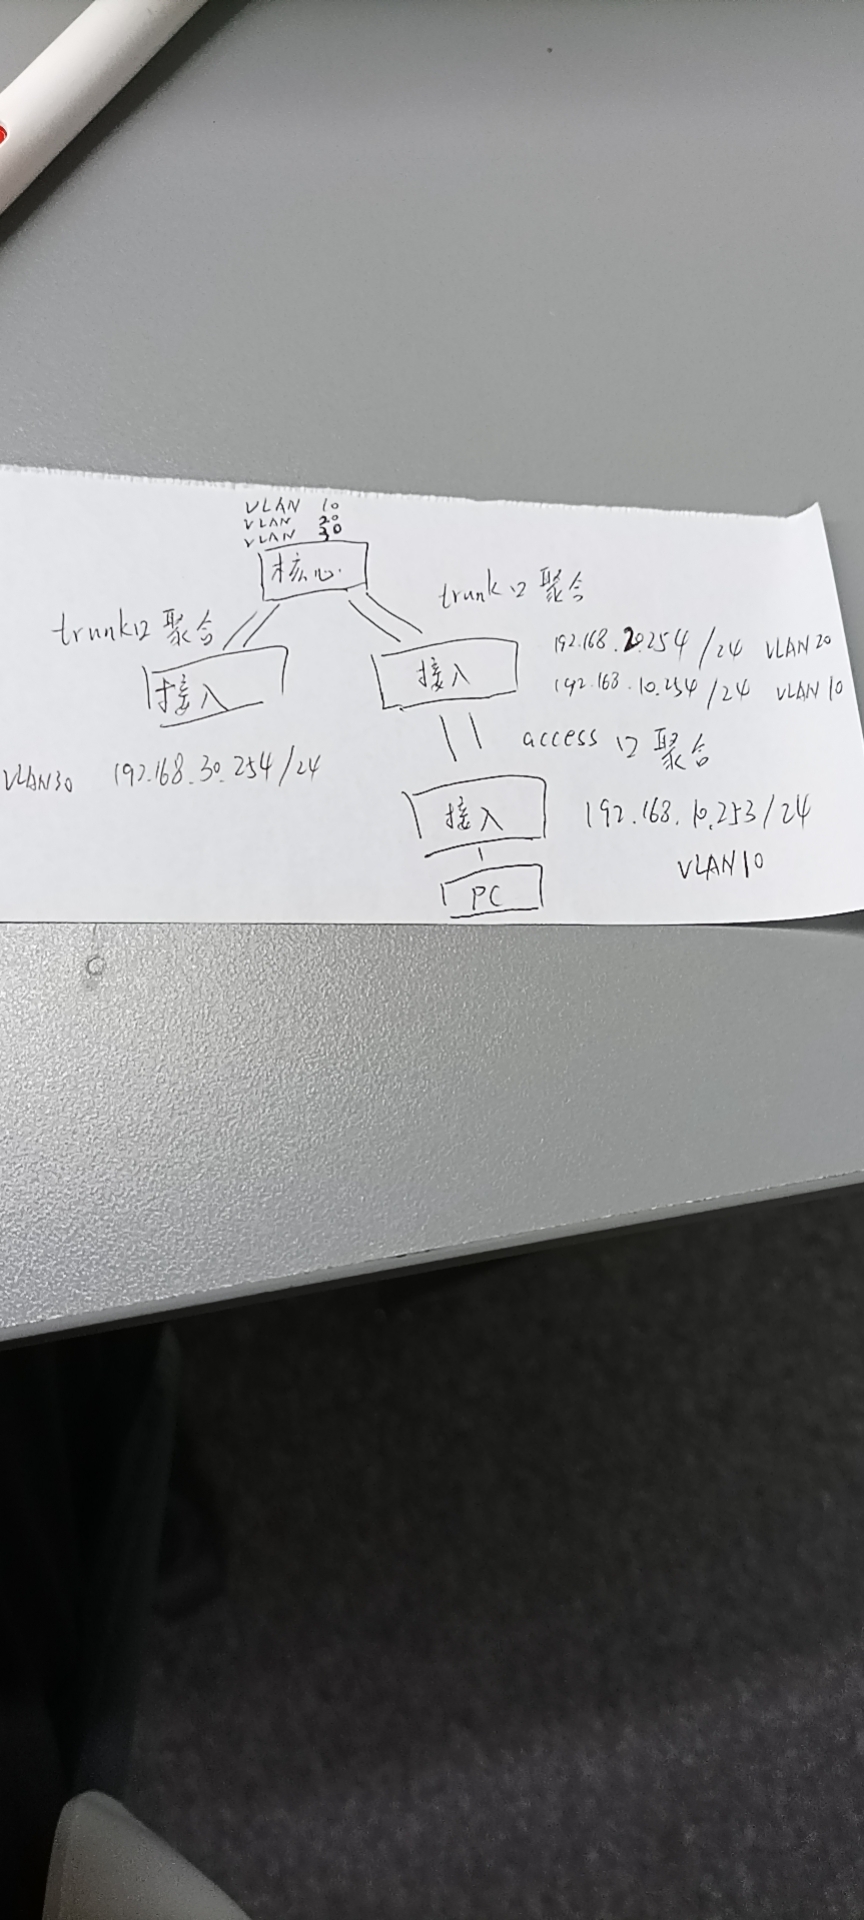 VLAN 10
VLAN 20
VLAN 30
核心
trunk口 聚合
trunk口 聚合
接入
接入
192.168.20.254/24 VLAN20
192.168.10.254/24 VLAN10
VLAN30 192.168.30.254/24
access 口 聚合
接入
192.168.10.253/24
VLAN10
PC